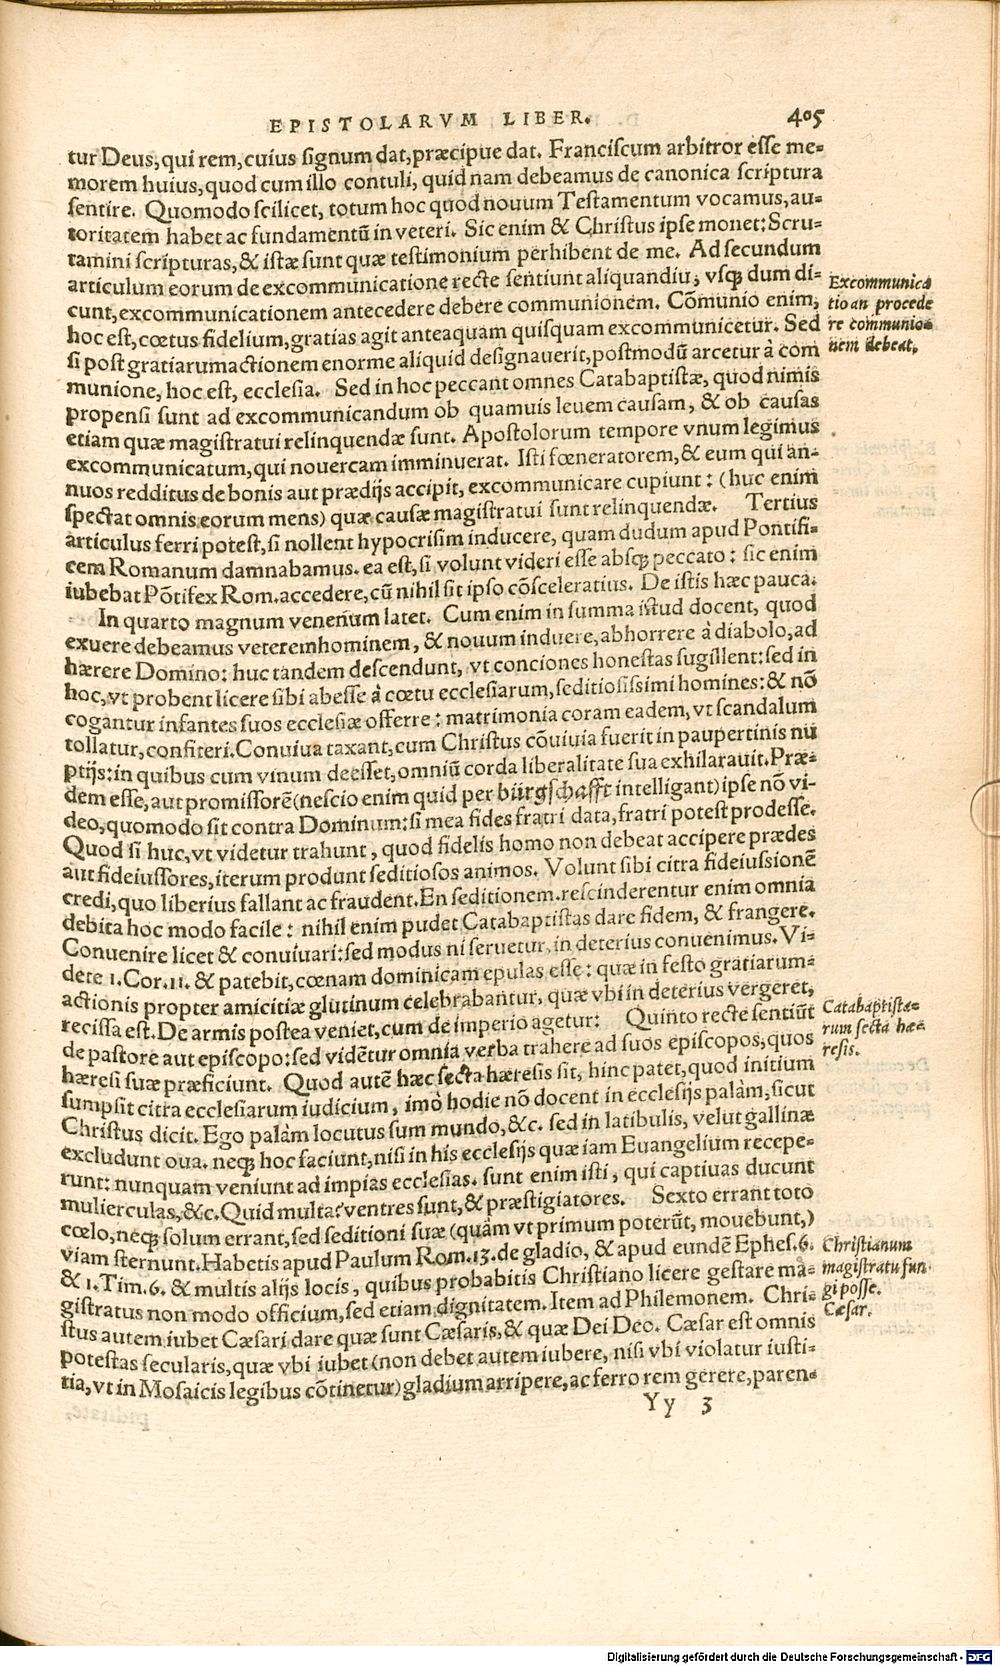 EPISTOLARVM LIBER. 405
tur Deus, qui rem, cuius signum dat, præcipue dat. Franciscum arbitror esse me-
morem huius, quod cum illo contuli, quid nam debeamus de canonica scriptura
sentire. Quomodo scilicet, totum hoc quod nouum Testamentum vocamus, au-
toritatem habet ac fundamentũ in veteri. Sic enim & Christus ipse monet: Scru-
tamini scripturas, & istæ sunt quæ testimonium perhibent de me. Ad secundum
articulum eorum de excommunicatione recte sentiunt aliquandiu, vsqȝ dum di-
cunt, excommunicationem antecedere debere communionem. Cõmunio enim,
hoc est, cœtus fidelium, gratias agit anteaquam quisquam excommunicetur. Sed
si post gratiarumactionem enorme aliquid designauerit, postmodũ arcetur à com
munione, hoc est, ecclesia. Sed in hoc peccant omnes Catabaptistæ, quod nimis
propensi sunt ad excommunicandum ob quamuis leuem causam, & ob causas
etiam quæ magistratui relinquendæ sunt. Apostolorum tempore vnum legimus
excommunicatum, qui nouercam imminuerat. Isti fœneratorem, & eum qui an-
nuos redditus de bonis aut prædijs accipit, excommunicare cupiunt: (huc enim
spectat omnis eorum mens) quæ causæ magistratui sunt relinquendæ. Tertius
articulus ferri potest, si nollent hypocrisim inducere, quam dudum apud Pontifi-
cem Romanum damnabamus. ea est, si volunt videri esse absqȝ peccato: sic enim
iubebat Põtifex Rom. accedere, cũ nihil sit ipso cõsceleratius. De istis hæc pauca.
In quarto magnum venenum latet. Cum enim in summa istud docent, quod
exuere debeamus veterem hominem, & nouum induere, abhorrere à diabolo, ad
hærere Domino: huc tandem descendunt, vt conciones honestas sugillent: sed in
hoc, vt probent licere sibi abesse à cœtu ecclesiarum, seditiosissimi homines: & nõ
cogantur infantes suos ecclesiæ offerre: matrimonia coram eadem, vt scandalum
tollatur, confiteri. Conuiua taxant, cum Christus cõuiuia fuerit in paupertinis nu
ptijs: in quibus cum vinum deesset, omniũ corda liberalitate sua exhilarauit. Præ-
dem esse, aut promissorẽ (nescio enim quid per bürgschafft intelligant) ipse nõ vi-
deo, quomodo sit contra Dominum: si mea fides fratri data, fratri potest prodesse.
Quod si huc, vt videtur trahunt, quod fidelis homo non debeat accipere prædes
aut fideiussores, iterum produnt seditiosos animos. Volunt sibi citra fideiussionẽ
credi, quo liberius fallant ac fraudent. En seditionem. rescinderentur enim omnia
debita hoc modo facile: nihil enim pudet Catabaptistas dare fidem, & frangere.
Conuenire licet & conuiuari: sed modus ni seruetur, in deterius conuenimus. Vi-
dete 1. Cor. 11. & patebit, cœnam dominicam epulas esse: quæ in festo gratiarum-
actionis propter amicitiæ glutinum celebrabantur, quæ vbi in deterius vergeret,
recissa est. De armis postea veniet, cum de imperio agetur: Quinto recte sentiũt
de pastore aut episcopo: sed vidẽtur omnia verba trahere ad suos episcopos, quos
hæresi suæ præficiunt. Quod autẽ hæc secta hæresis sit, hinc patet, quod initium
sumpsit citra ecclesiarum iudicium, imò hodie nõ docent in ecclesijs palàm, sicut
Christus dicit. Ego palàm locutus sum mundo, &c. sed in latibulis, velut gallinæ
excludunt oua. neqȝ hoc faciunt, nisi in his ecclesijs quæ iam Euangelium recepe-
runt: nunquam veniunt ad impias ecclesias. sunt enim isti, qui captiuas ducunt
mulierculas, &c. Quid multa? ventres sunt, & præstigiatores. Sexto errant toto
cœlo, neqȝ solum errant, sed seditioni suæ (quàm vt primum poterũt, mouebunt,)
viam sternunt. Habetis apud Paulum Rom. 13. de gladio, & apud eundẽ Ephes. 6.
& 1. Tim. 6. & multis alijs locis, quibus probabitis Christiano licere gestare ma-
gistratus non modo officium, sed etiam dignitatem. Item ad Philemonem. Chri-
stus autem iubet Cæsari dare quæ sunt Cæsaris, & quæ Dei Deo. Cæsar est omnis
potestas secularis, quæ vbi iubet (non debet autem iubere, nisi vbi violatur iusti-
tia, vt in Mosaicis legibus cõtinetur) gladium arripere, ac ferro rem gerere, paren-
Yy 3
Excommunica
tio an procede
re communio-
nem debeat.
Catabaptista-
rum secta hæ-
resis.
Christianum
magistratu fun
gi posse.
Cæsar.
Digitalisierung gefördert durch die Deutsche Forschungsgemeinschaft - DFG